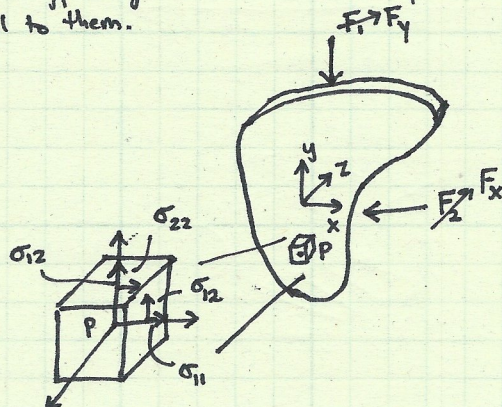 l to them.
F1 Fy
y
z
x
F2 Fx
P
σ22
σ12
σ12
P
σ11